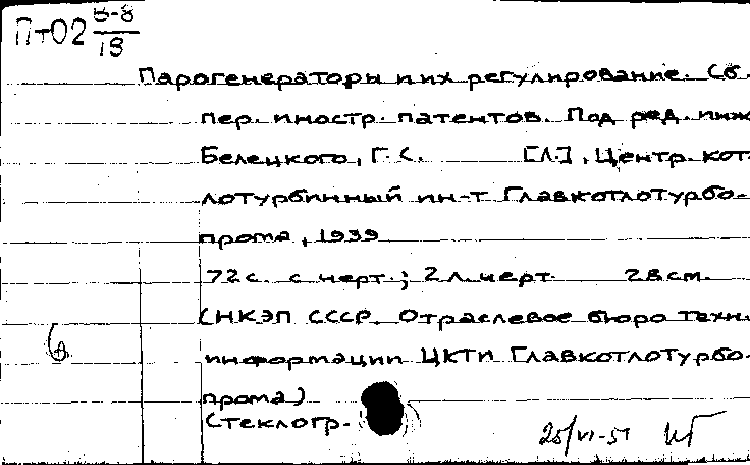 Пт02 В-8
18
Парогенераторы и их регулирование. Сб.
пер. иностр. патентов. Под ред. инж
Белецкого, Г.С. [Л.], Центр. кот
лотурбинный ин-т Главкотлотурбо-
прома, 1939
72 с. с черт.; 2 л. черт. 28 см.
(НКЭП СССР. Отраслевое бюро техн.
информации ЦКТИ Главкотлотурбо-
прома)
Стеклогр.